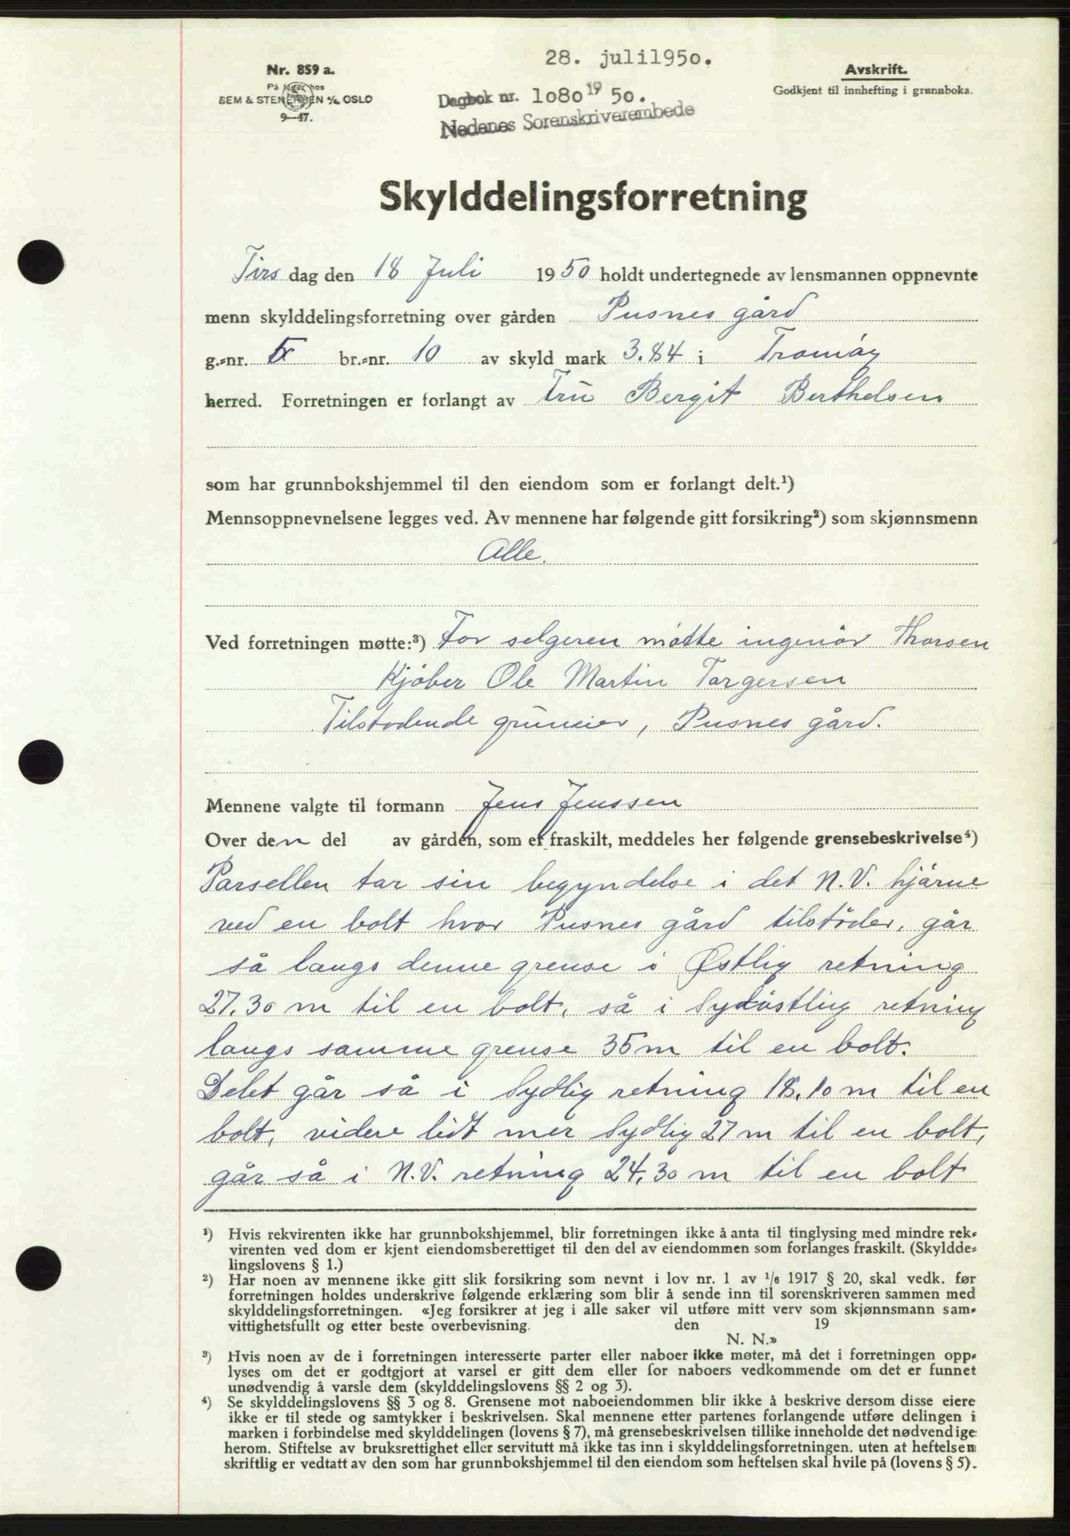 28. juli1950.
Nr. 859 a.
På lager hos
SEM & STENERSEN A/S OSLO
9—47.
Avskrift.
Godkjent til innhefting i grunnboka.
Dagbok nr. 1080 19 50.
Nedenes Sorenskriverembede
Skylddelingsforretning
Tirs dag den 18 Juli 1950 holdt undertegnede av lensmannen oppnevnte
menn skylddelingsforretning over gården Pusnes gård
g.-nr. 5 br.-nr. 10 av skyld mark 3.84 i Tromöy
herred. Forretningen er forlangt av Fru Bergit Berthelsen
som har grunnbokshjemmel til den eiendom som er forlangt delt.¹)
Mennsoppnevnelsene legges ved. Av mennene har følgende gitt forsikring²) som skjønnsmenn
Alle.
Ved forretningen møtte:³) For selgeren mötte ingeniör Thorsen
Kjöber Ole Martin Torgersen
Tilstödende gruneier, Pusnes gård.
Mennene valgte til formann Jens Jenssen
Over den del av gården, som er fraskilt, meddeles her følgende grensebeskrivelse⁴)
Parsellen tar sin begyndelse i det N.V. hjörne
ved en bolt hvor Pusnes gård tilstöder, går
så langs denne grense i Østlig retning
27.30 m til en bolt, så i Sydöstlig retning
langs samme grense 35 m til en bolt.
Delet går så i Sydlig retning 18.10 m til en
bolt, videre lidt mer Sydlig 27 m til en bolt,
går så i N.V. retning 24.30 m til en bolt
¹) Hvis rekvirenten ikke har grunnbokshjemmel, blir forretningen ikke å anta til tinglysing med mindre rek-
virenten ved dom er kjent eiendomsberettiget til den del av eiendommen som forlanges fraskilt. (Skyldde-
lingslovens § 1.)
²) Har noen av mennene ikke gitt slik forsikring som nevnt i lov nr. 1 av ¹/₆ 1917 § 20, skal vedk. før
forretningen holdes underskrive følgende erklæring som blir å sende inn til sorenskriveren sammen med
skylddelingsforretningen. «Jeg forsikrer at jeg i alle saker vil utføre mitt verv som skjønnsmann sam-
vittighetsfullt og etter beste overbevisning. den 19
N. N.»
³) Hvis noen av de i forretningen interesserte parter eller naboer ikke møter, må det i forretningen opp-
lyses om det er godtgjort at varsel er gitt dem eller for naboers vedkommende om det er funnet
unødvendig å varsle dem (skylddelingslovens §§ 2 og 3).
⁴) Se skylddelingslovens §§ 3 og 8. Grensene mot naboeiendommen blir ikke å beskrive dersom disse eiere
ikke er til stede og samtykker i beskrivelsen. Skal mennene etter partenes forlangende utføre delingen i
marken i forbindelse med skylddelingen (lovens § 7), må grensebeskrivelsen tillike inneholde det nødvendige
herom. Stiftelse av bruksrettighet eller servitutt må ikke tas inn i skylddelingsforretningen. uten at heftelsen
skriftlig er vedtatt av den som har grunnbokshjemmel til den eiendom som heftelsen skal hvile på (lovens § 5).